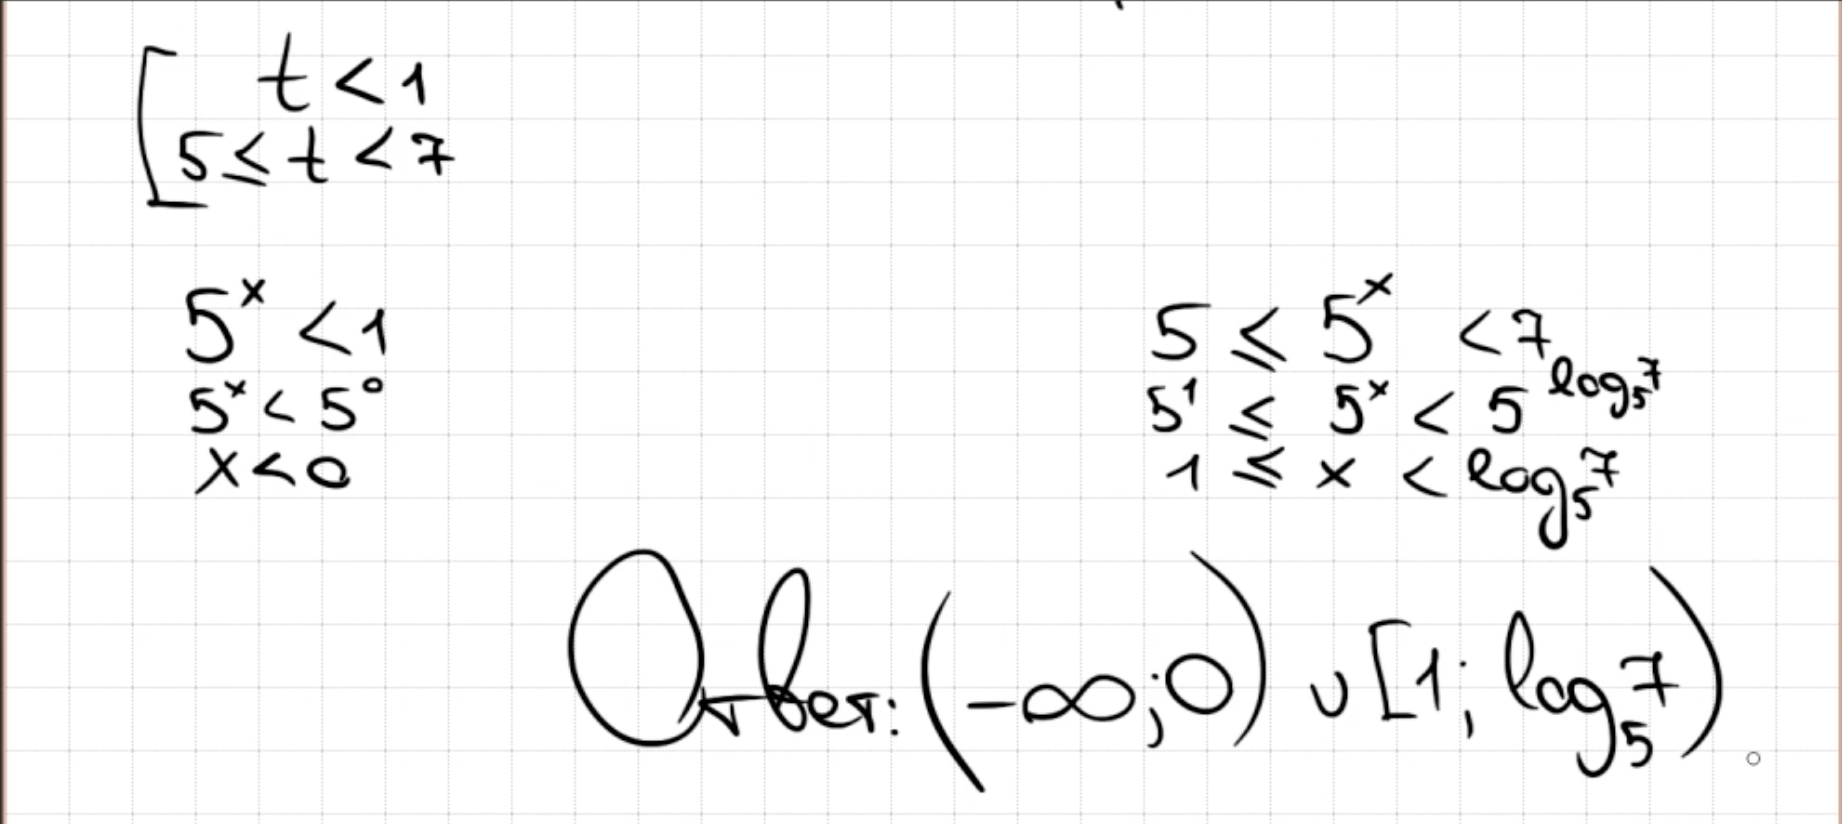 t < 1
5 ≤ t < 7
5ˣ < 1
5ˣ < 5⁰
x < 0
5 ≤ 5ˣ < 7
5¹ ≤ 5ˣ < 5^log₅7
1 ≤ x < log₅7
Ответ: (-∞; 0) ∪ [1; log₅7)